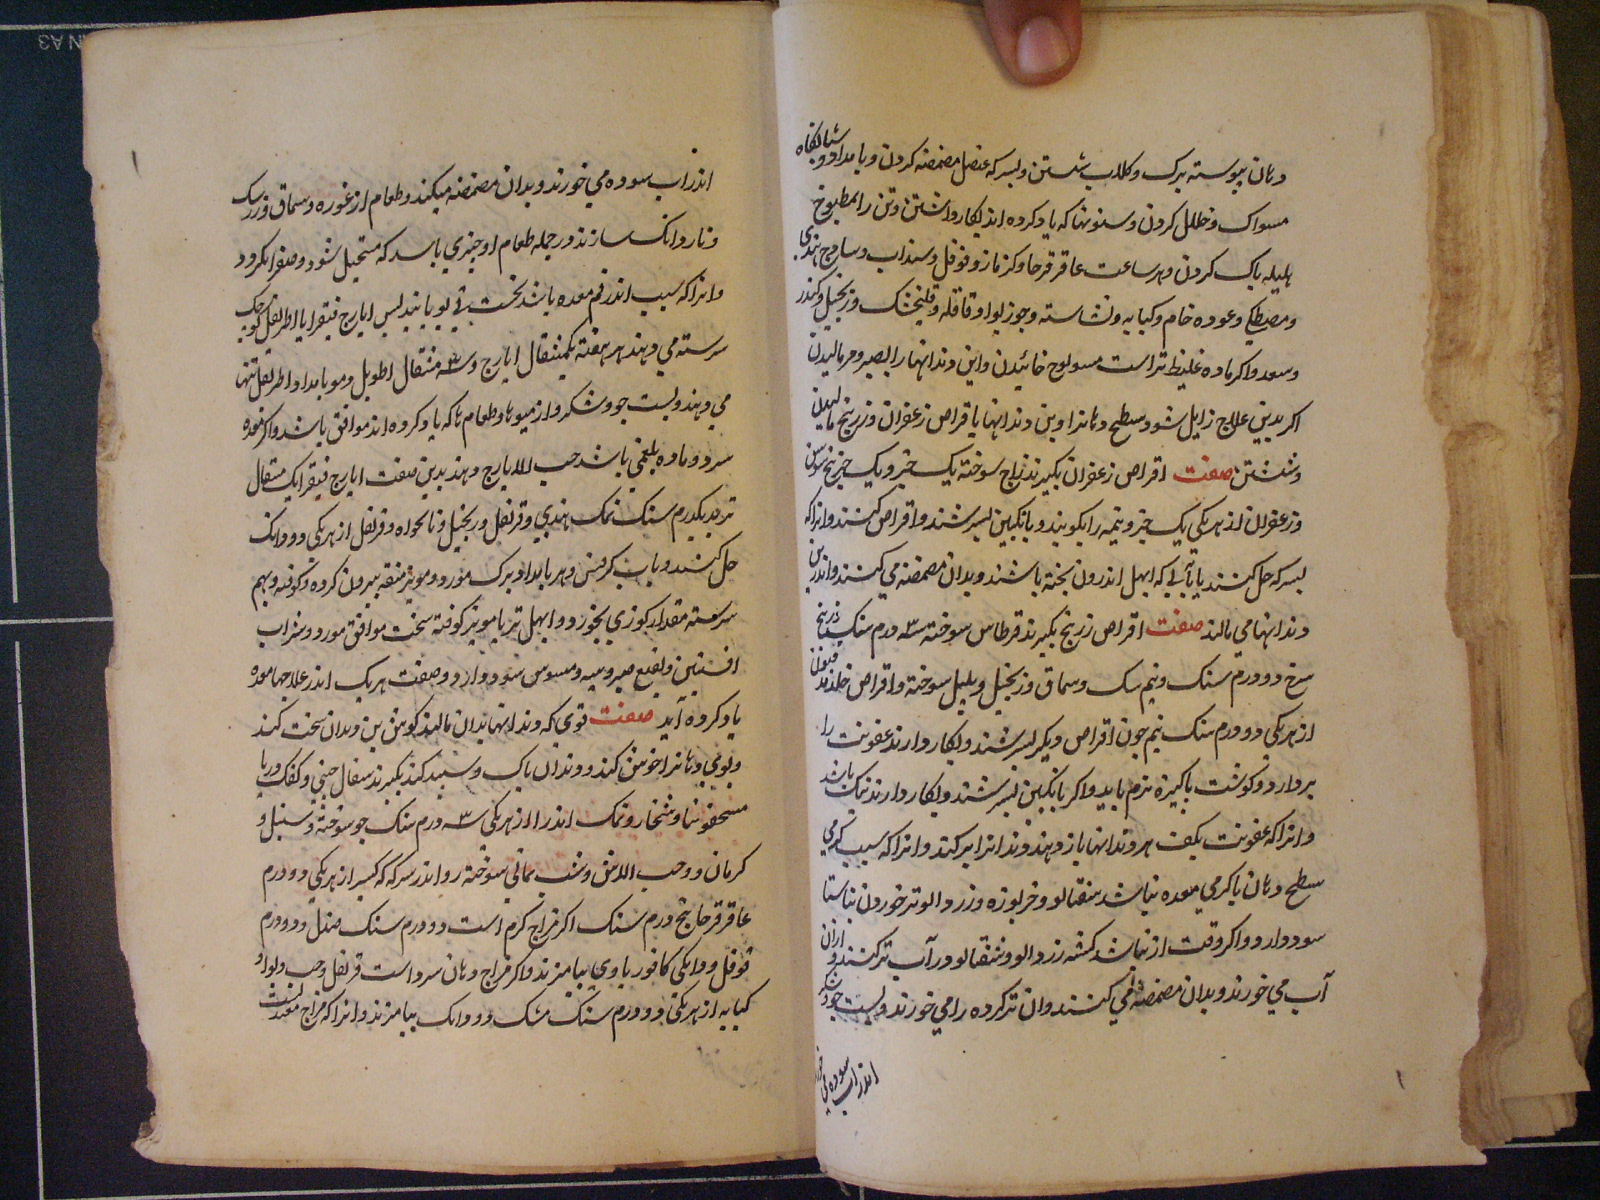 دهان پیوسته ببرک و کلاب شستن و بسرکه عنصل مضمضه کردن و بامداد و شبانکاه
مسواک و خلال کردن و سنونها که یاد کرده اند بکار داشتن و تن را بمطبوخ
هلیله پاک کردن و هر ساعت عاقرقرحا و کزمازو و فوفل و سنداب و سادج هندی
و مصطکی و عود خام و کبابه و نشاسته و جوز بوا و قاقله و فلنجشک و زنجبیل و کندر
و سعد و اکر ماده غلیظ تر است خائیدن و این دندانها را بصبر و مر مالیدن
اکر بدین علاج زایل شود و سطح دهان را و بن دندانها باقراص زعفران و زرنیخ مالیدن
و شستن صفت اقراص زعفران بکیرند زاج سوخته یک جزو یک جزو بیخ سوسن
و زعفران از هر یکی یک جزو نیمه را بکوبند و بانکبین بسرشند و اقراص کنند و انرا که
بسرکه حل کنند یا بآبی که ابهل اندرون پخته باشند و بدان مضمضه می کنند و اندر بن
دندانها می مالند صفت اقراص زرنیخ بکیرند قرطاس سوخته سه ۳ درم سنک زرنیخ
سرخ دو درم سنک و نیم سک و سماق و زنجبیل و پلپل سوخته و اقراص
از هر یکی دو درم سنک نیم چون اقراص دیکر بسرشند و بکار دارند عفونت را
بردارد و کوشت پاکیزه نرم باید و اکر بانکبین بسرشند و بکار دارند نیک باشد
و انرا که عفونت یکف هر دندانها باز دهند دندانرا بر کند و انرا که سبب کرمی
سطح دهان یا کرمی معده باشد شفتالو و خربوزه و زردالو تر خوردن ناشتا
سود دارد و اکر وقت ان نباشد کشته زردالو و شفتالو در آب تر کنند و ازان
آب می خورند و بدان مضمضه می کنند و ان تر کرده را می خورند و پست جو و شکر
اندر آب سوده می خورند
اندر آب سوده می خورند و بدان مضمضه میکنند و طعام از غوره و سماق و زرشک
و ناردانک سازند و در جمله طعام او چیزی باشد که مستحیل شود و صفرا نکردد
و انرا که سبب اندر فم معده باشد نخست قی بفرمایند پس ایارج فیقرا یا اطریفل کوچک
سرشته می دهند هر هفته یکمثقال ایارج و سه ۳ مثقال اطریفل و هر بامداد اطریفل تنها
می دهند و پست جو و شکر و از میوها و طعام ها که یاد کرده اند موافق باشد و اکر معده
سرد و ماده بلغمی باشد حب الایارج دهند بدین صفت ایارج فیقرا یک مثقال
تربد یکدرم سنک نمک هندی و قرنفل و زنجبیل و نانخواه و قرنفل از هر یکی دو دانک
حل کنند و بآب کرفس و هر بامداد برک مورد و مویز منقه بیرون کرده و کوفته و بهم
سرشته مقدار کوزی بخورد و ابهل تر با مویز کوفته سخت موافق مورد و شراب
افسنتین و نقیع صبر و میبه و میسوسن سود دارد و صفت هر یک اندر علاجها معده
یاد کرده آید صفت قوی که دندانها بدان مالند کوشت بن دندان سخت کند
و بوی دهانرا خوش کند و دندان پاک و سپید کند بکیرند سفال چینی و کفک دریا
مسحقونیا و شخار و نمک اندرانی از هر یکی سه ۳ درم سنک جو سوخته و سنبل و
کرمازو و حب الآس و شب یمانی سوخته و اندر سرکه کشته از هر یکی دو درم
عاقرقرحا پنج درم سنک اکر مزاج کرم است دو درم سنک صندل و دو درم
فوفل و دانکی کافور با وی بیامیزند و اکر مزاج دهان سرد است قرنفل و
کبابه از هر یکی دو درم سنک مشک دو دانک بیامیزند و انرا که مزاج معتدلست